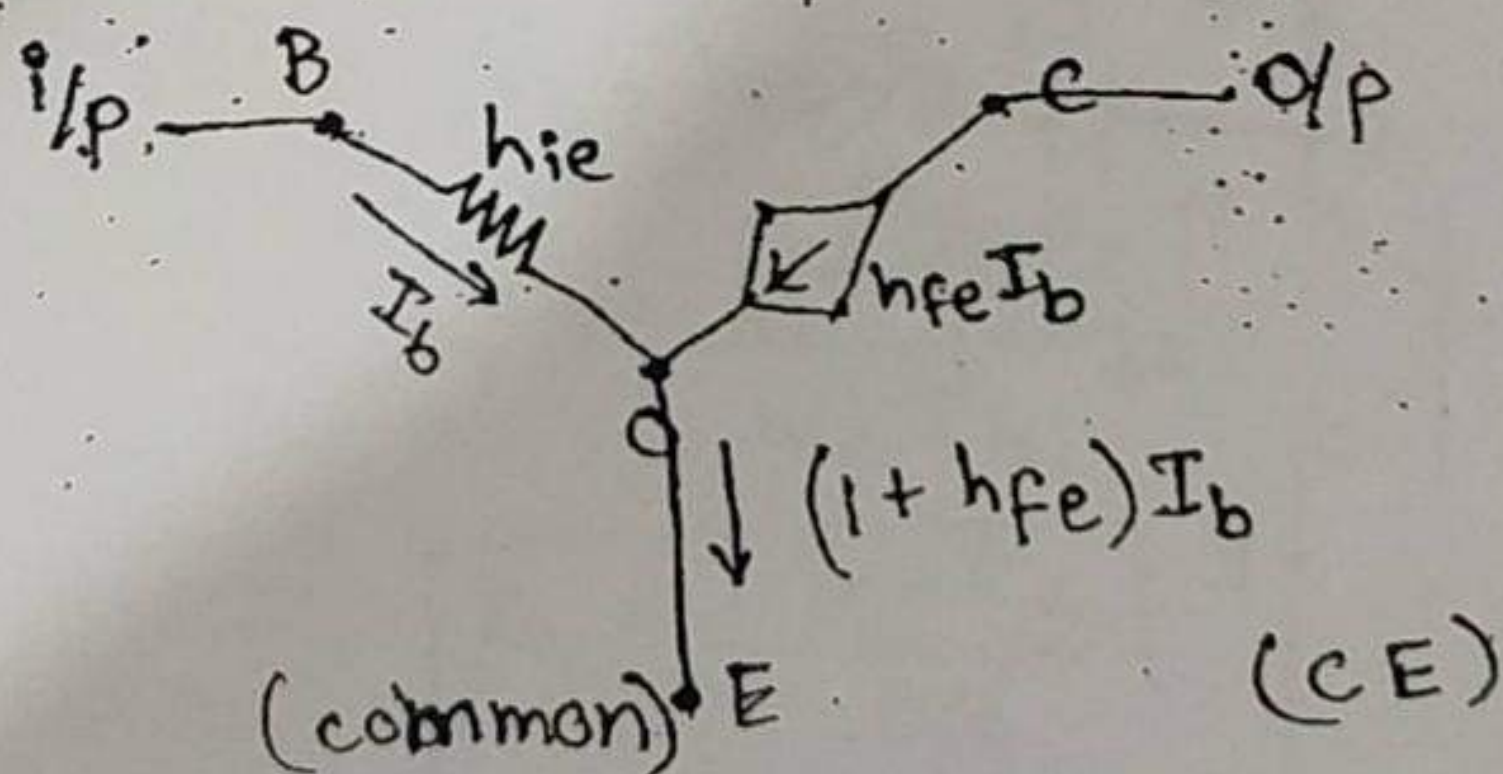 i/p B C o/p
hie
Ib hfeIb
(1 + hfe) Ib
(common) E (CE)